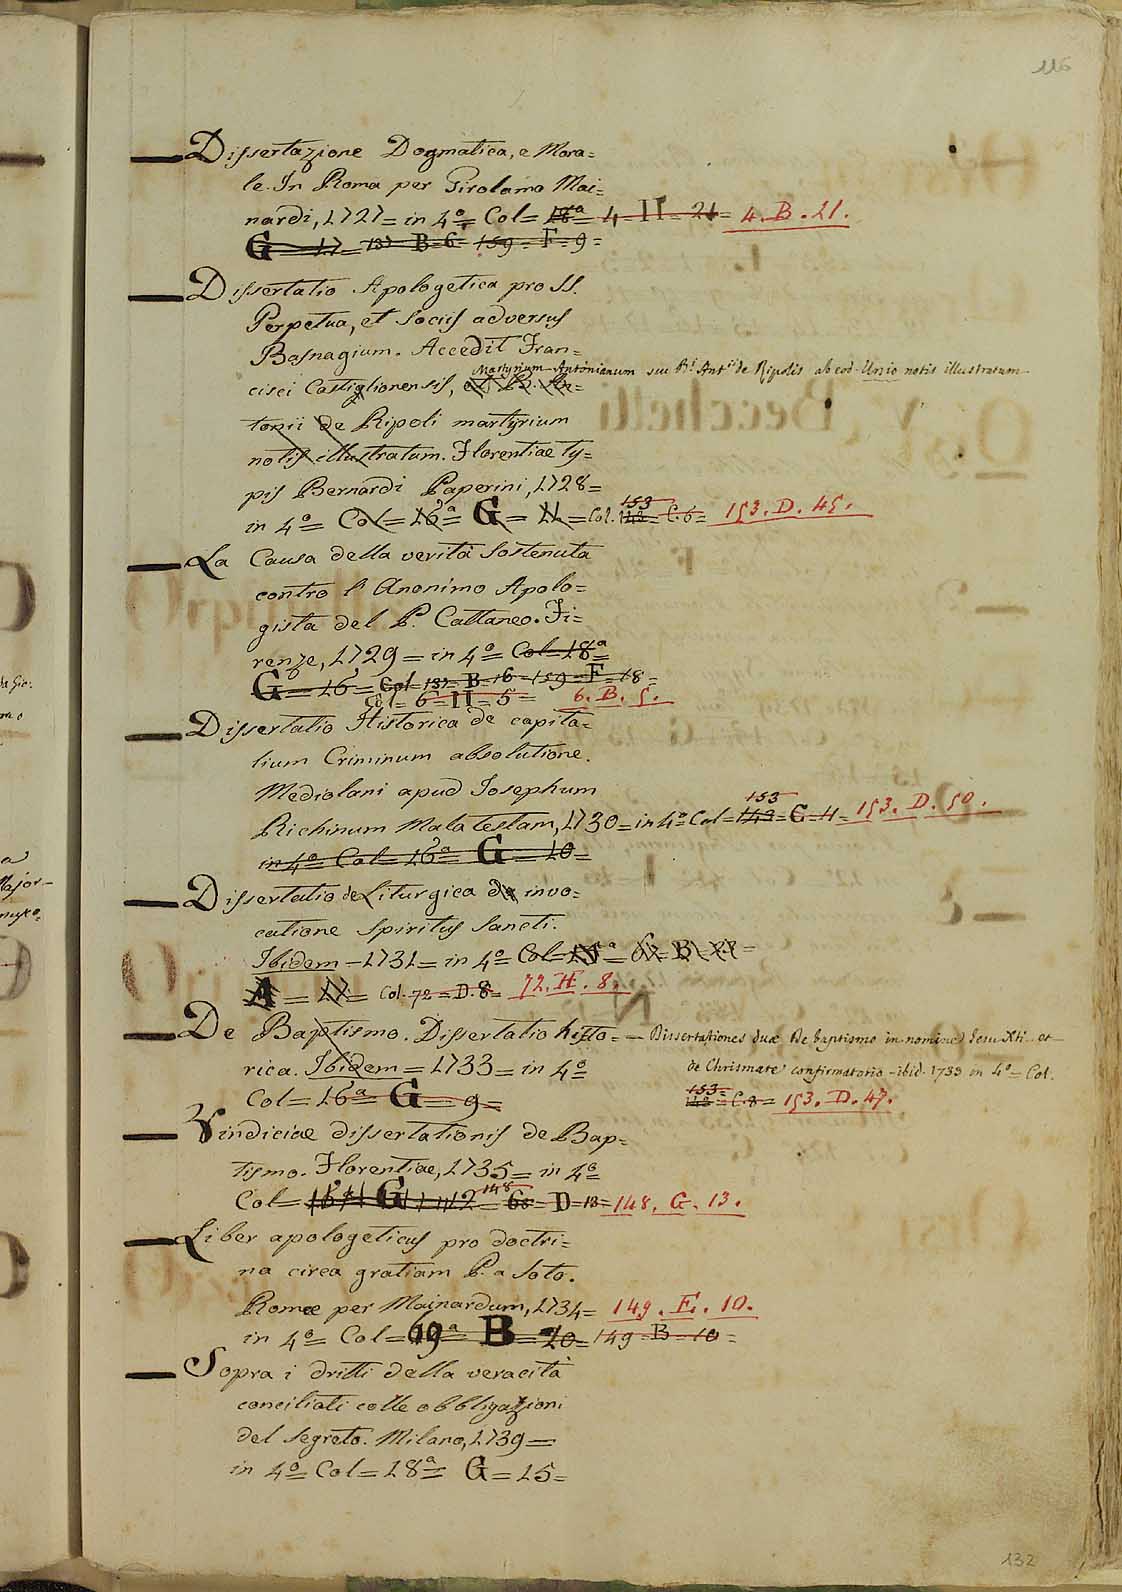 116
— Dissertazione Dogmatica, e Mora=
le. In Roma per Girolamo Mai=
nardi, 1727 = in 4º Col = 18ª = 4 - H = 21 = 4. B. 21.
G = 17 = 137 = B = 6 = 159 = F = 9 =
— Dissertatio Apologetica pro SS.
Perpetua, et Sociis adversus
Basnagium. Accedit Fran=
Martyrium Antonianum seu Bⁱ Antⁱⁱ de Ripolis ab eod. Ursio notis illustratum
cisci Castiglionensis, et B. An=
tonii de Ripoli martyrium
notis illustratum. Florentiae ty=
pis Bernardi Paperini, 1728 =
in 4º = Col = 16ª = G = 11 = Col. 142 = 153 C. 6 = 153. D. 45.
— La Causa della verità sostenuta
contro l' Anonimo Apolo=
gista del P. Cattaneo. Fi=
renze, 1729 = in 4º = Col = 18ª =
G = 16 = Col = 137 = B = 16 = 159 = F = 18 =
Col = 6 = H = 5 = 6. B. 5.
— Dissertatio Historica de capita=
lium Criminum absolutione.
Mediolani apud Josephum
Richinum Malatestam, 1730 = in 4º = Col = 143 = 153 C = 11 = 153. D. 50.
in 4º = Col = 16ª = G = 10 =
— Dissertatio de Liturgica de invo=
catione Spiritus Sancti.
Ibidem = 1731 = in 4º = Col =
A = 17 = Col. 72 = D. 8 = 72. H. 8.
— De Baptismo. Dissertatio histo= — Dissertationes duae De baptismo in nomine Jesu Xti et
rica. Ibidem = 1733 = in 4º de Chrismate confirmatorio - ibid. 1733 in 4º = Col.
Col = 16ª = G = 9 = 153 = C. 8 = 153. D. 47.
— Vindiciae dissertationis de Bap=
tismo. Florentiae, 1735 = in 4º
Col = 16ª G 12 148 = D = 13 = 148. G. 13.
— Liber apologeticus pro doctri=
na circa gratiam P. a Soto.
Romae per Mainardum, 1734 = 149. E. 10.
in 4º = Col = 69ª = B = 20 = 149 = B = 10 =
— Sopra i dritti della veracità
conciliati colle obbligazioni
del segreto. Milano, 1739 =
in 4º = Col = 18ª = G = 15 =
132